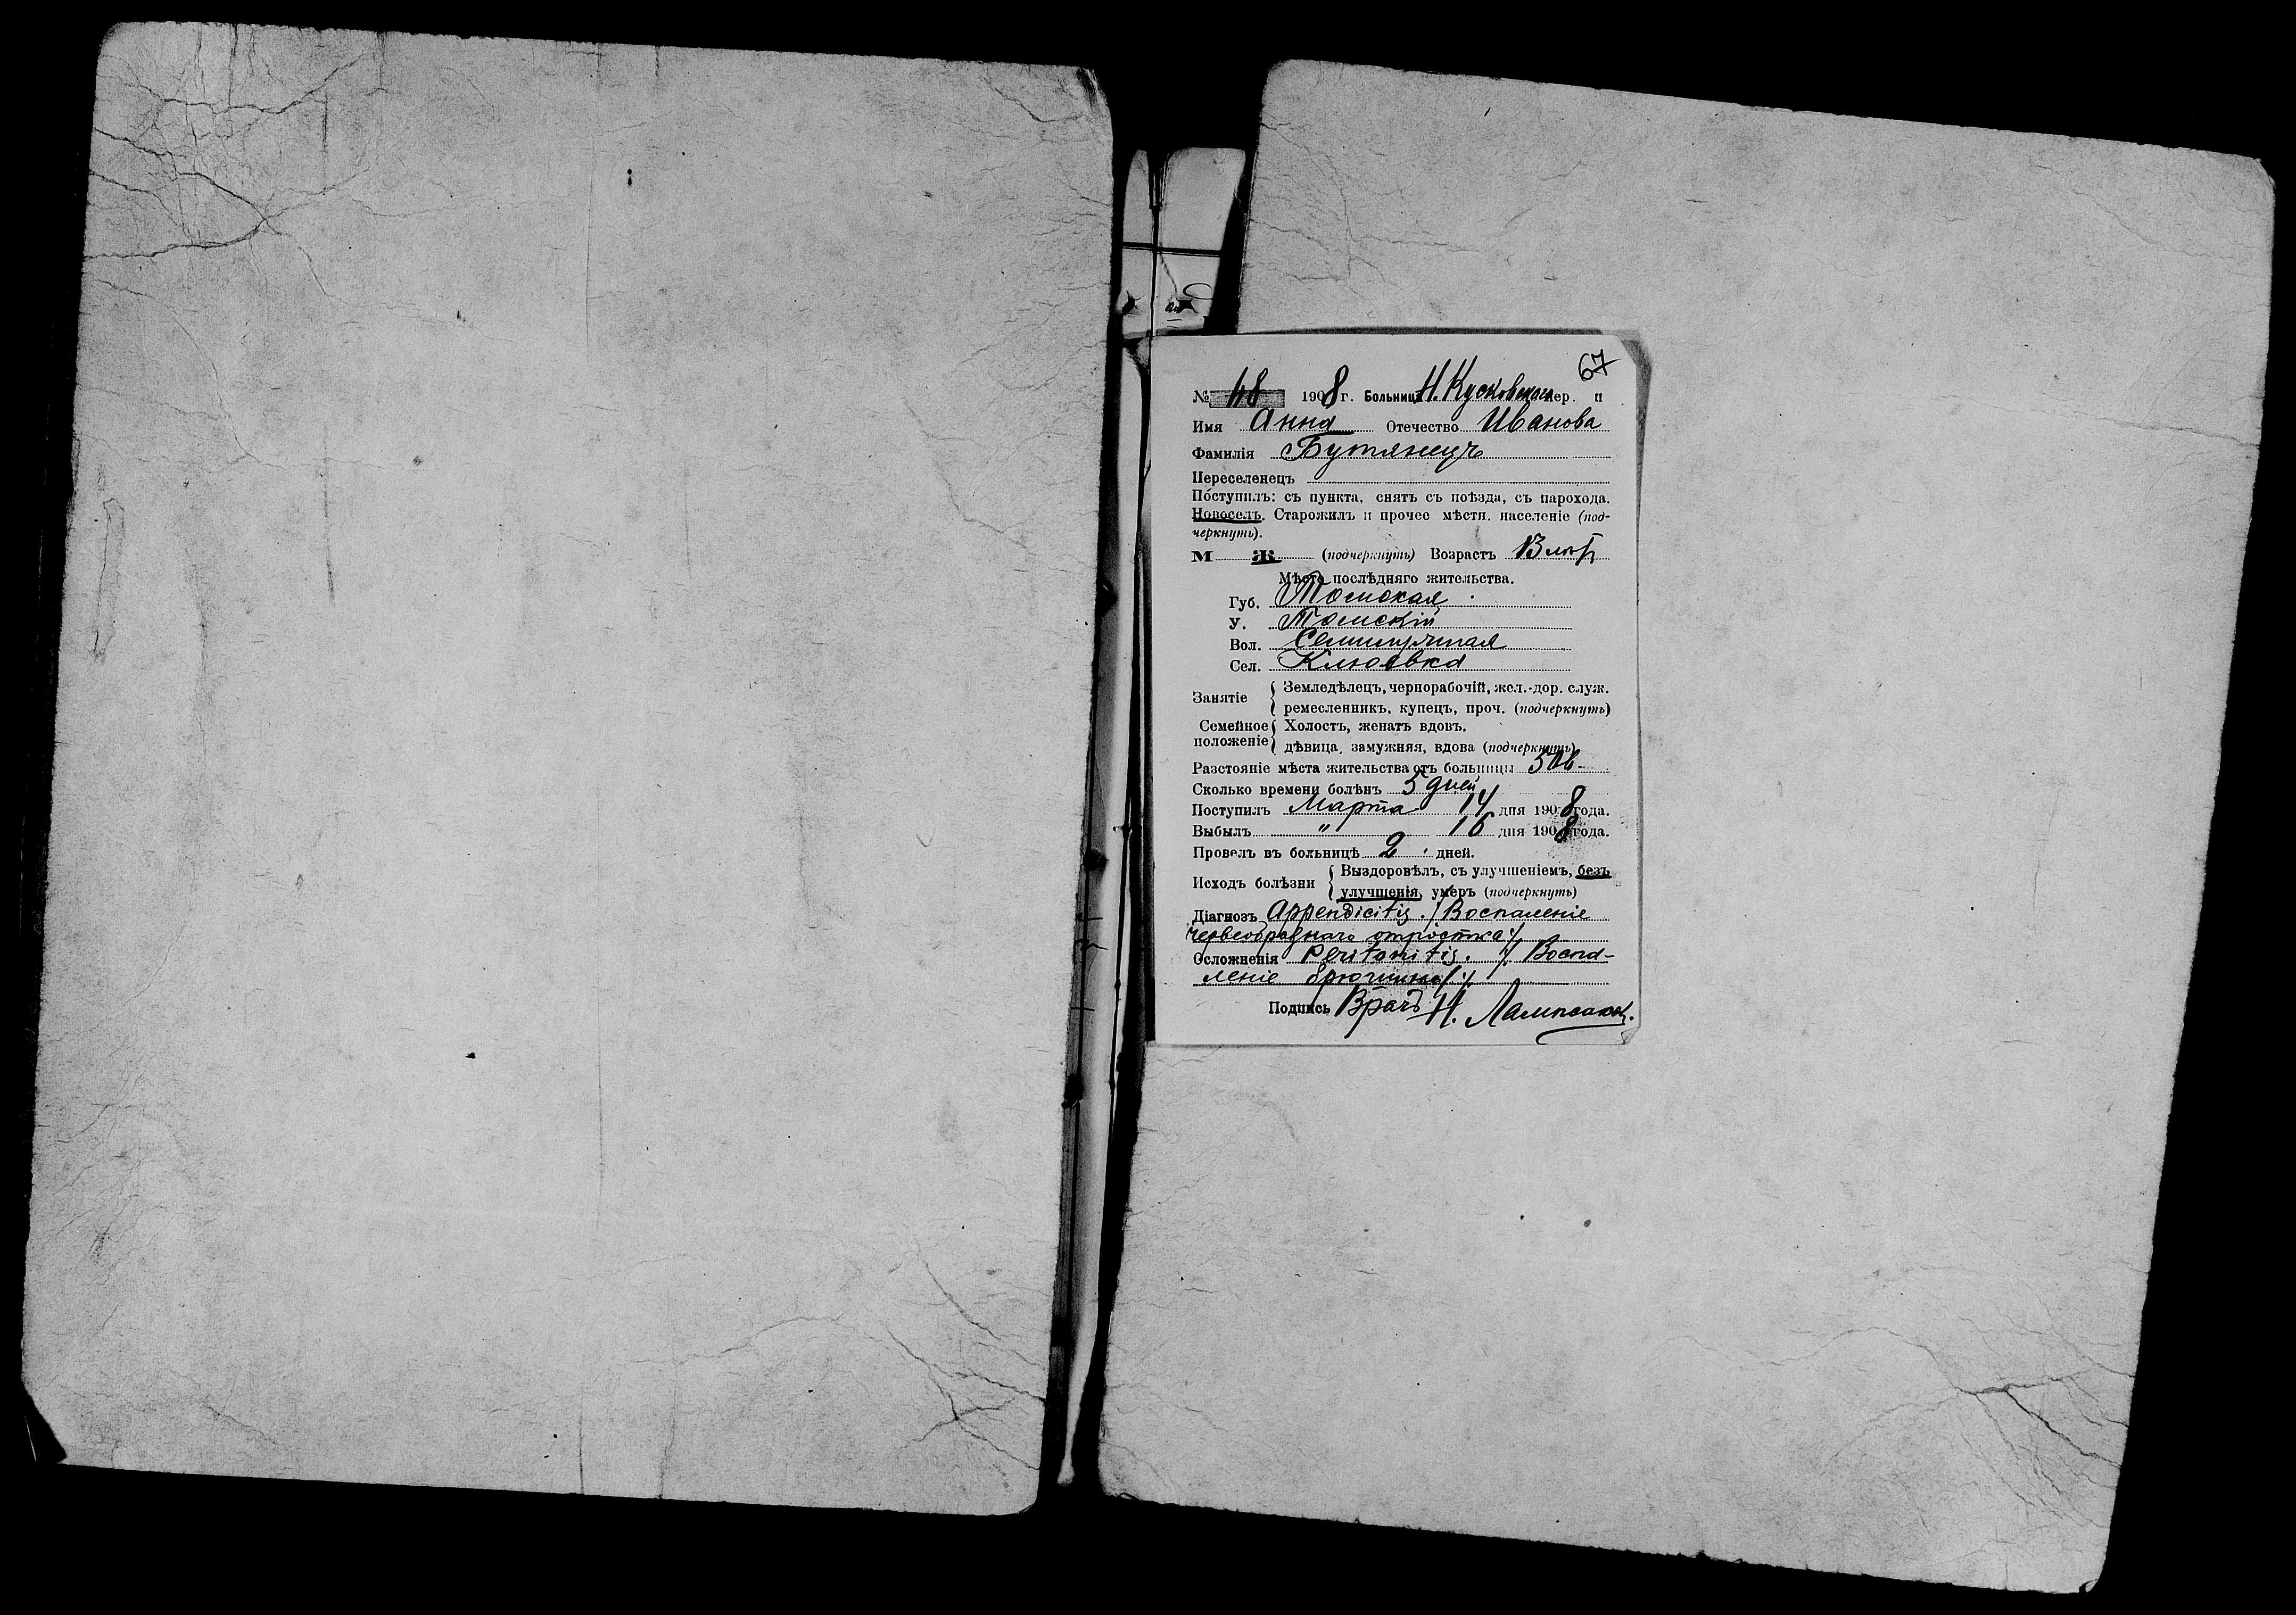 67
№ 48 1908 г. Больница Н. Кусковскаго пер. п
Имя Анна Отчество Иванова
Фамилія Бутянецъ
Переселенецъ
Поступилъ: съ пункта, снятъ съ поѣзда, съ парохода.
Новоселъ. Старожилъ и прочее мѣстн. населеніе (под-
черкнуть).
М Ж (подчеркнуть) Возрастъ 13 лѣтъ
Мѣсто послѣдняго жительства.
Губ. Томская
У. Томскій
Вол.
Сел. Клюевка
Занятіе { Земледѣлецъ, чернорабочій, жел.-дор. служ.
ремесленникъ, купецъ, проч. (подчеркнуть)
Семейное положеніе { Холостъ, женатъ вдовъ.
дѣвица, замужняя, вдова (подчеркнуть)
Разстояніе мѣста жительства отъ больницы 50 в.
Сколько времени болѣнъ 5 дней
Поступилъ Марта 14 дня 1908 года.
Выбылъ " 16 дня 1908 года.
Провелъ въ больницѣ 2 дней.
Исходъ болѣзни { Выздоровѣлъ, съ улучшеніемъ, безъ
улучшенія, умеръ (подчеркнуть)
Діагнозъ Appendicitis. /Воспаленіе
червеобразнаго отростка/
Осложненія Peritonitis. /: Воспа-
леніе брюшины :/
Подпись Врачъ Н.